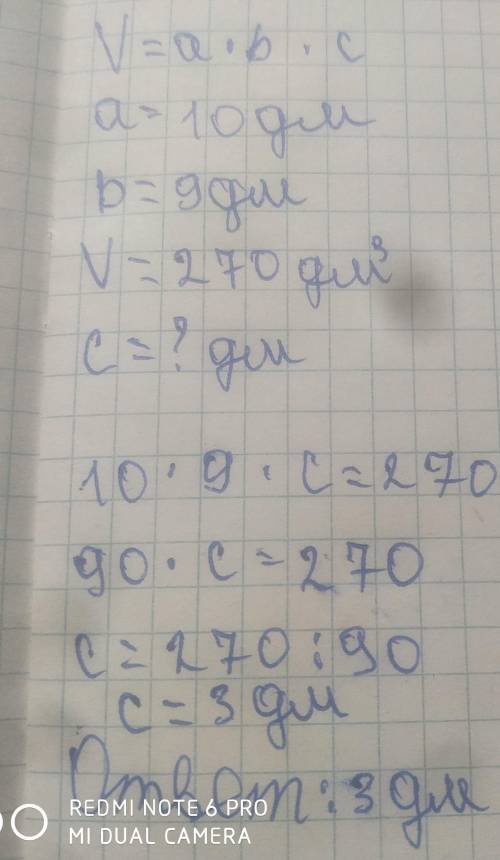 V = a · b · c
a = 10 дм
b = 9 дм
V = 270 дм³
c = ? дм
10 · 9 · c = 270
90 · c = 270
c = 270 : 90
c = 3 дм
Ответ: 3 дм
REDMI NOTE 6 PRO
MI DUAL CAMERA